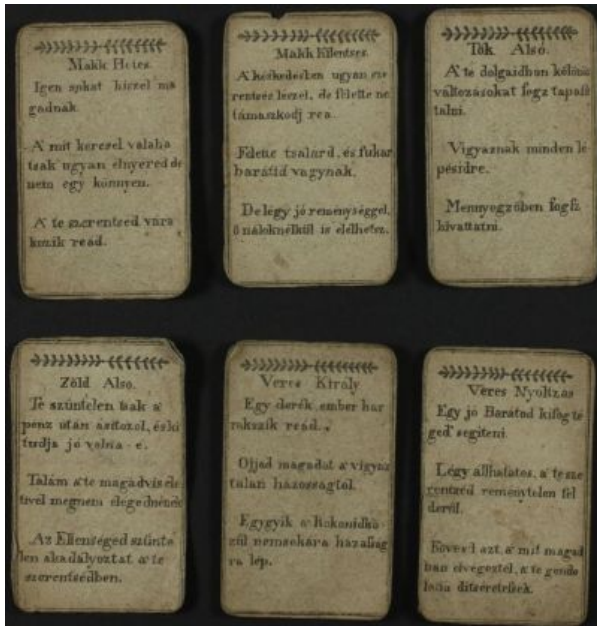 Makk Hetes.
Igen sokat hiszel ma
gadnak.
A' mit keresel valaha
tsak ugyan elnyered de
nem egy könnyen.
A' te szerentséd vára
kozik reád.
Makk Kilentzes.
A' késkedésben ugyan sze
rentsés leszel, de felette ne
támaszkodj rea.
Felette tsalárd, és fukar
barátid vagynak.
De légy jó reménységgel,
ő náloknélkül is elélhetez.
Tök Alsó.
A' te dolgaidban különös
változásokat fogsz tapasz
talni.
Vigyáznak minden lé
pésidre.
Mennyegzőben fogsz
hivattatni.
Zöld Also.
Te szüntelen tsak a'
pénz után ásítozol, és ki
tudja jó volna-e.
Talám a' te magadvise
tivel megnem elégednének
Az Ellenséged szünte
len akadályoztat a' te
szerentsédben.
Veres Király
Egy derék ember har
rokszik reád.
Ojjad magadat a' vigyáz
talan házosságtól.
Egygyik a' Rokonidkö
zül nemsokára házaság
ra lép.
Veres Nyoltzas
Egy jó Barátod kifog té
ged' segiteni.
Légy állhatatos, a' te sze
rentséd reménytelen fel
derül.
Kövesd azt, a' mit magad
ban elvégeztél, a' te gondo
latid ditséretesek.